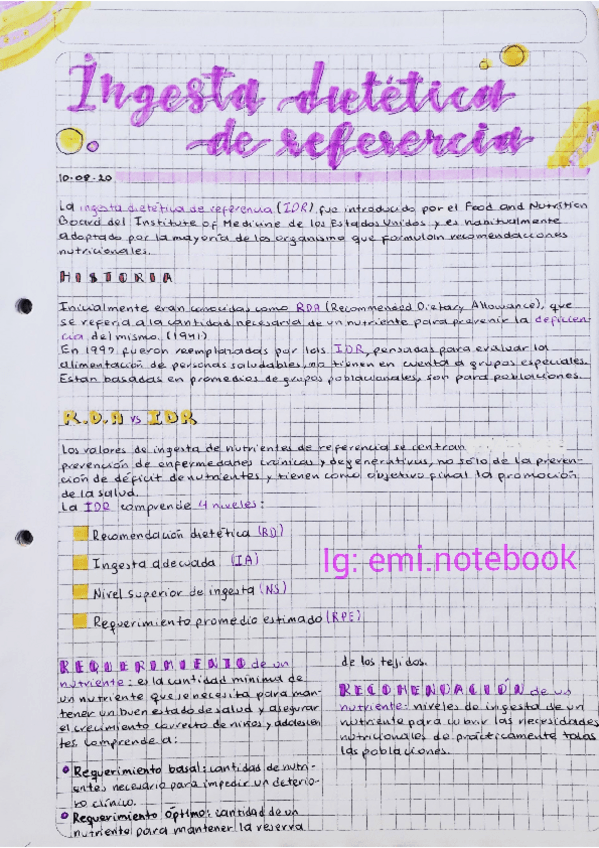 Ingesta dietética
de referencia
10-08-20
La ingesta dietética de referencia (IDR) fue introducido por el Food and Nutrition
Board del Institute of Medicine de los Estados Unidos y es habitualmente
adoptado por la mayoría de los organismo que formulan recomendaciones
nutricionales.
HISTORIA
Inicialmente eran conocidas como RDA (Recommended Dietary Allowance), que
se referia a la cantidad necesaria de un nutriente para prevenir la deficien-
cia del mismo. (1941)
En 1997 fueron reemplazadas por las IDR, pensadas para evaluar la
alimentación de personas saludables, no tienen en cuenta a grupos especiales.
Estan basadas en promedios de grupos poblacionales, son para poblaciones.
R.D.A vs IDR
Los valores de ingesta de nutrientes de referencia se centran
prevención de enfermedades crónicas y degenerativas, no solo de la preven-
ción de déficit de nutrientes y tienen como objetivo final la promoción
de la salud.
La IDR comprende 4 niveles:
Recomendación dietética (RD)
Ingesta adecuada (IA)
Ig: emi.notebook
Nivel superior de ingesta (NS)
Requerimiento promedio estimado (RPE)
REQUERIMIENTO de un
nutriente: es la cantidad mínima de
un nutriente que se necesita para man-
tener un buen estado de salud y asegurar
el crecimiento correcto de niños y adolescen
tes comprende a:
Requerimiento basal: cantidas de nutri-
entes necesario para impedir un deterio-
ro clínico.
Requerimiento óptimo: cantidad de un
nutriente para mantener la reserva
de los tejidos.
RECOMENDACIÓN de un
nutriente: niveles de ingesta de un
nutriente para cubrir las necesidades
nutricionales de prácticamente todas
las poblaciones.